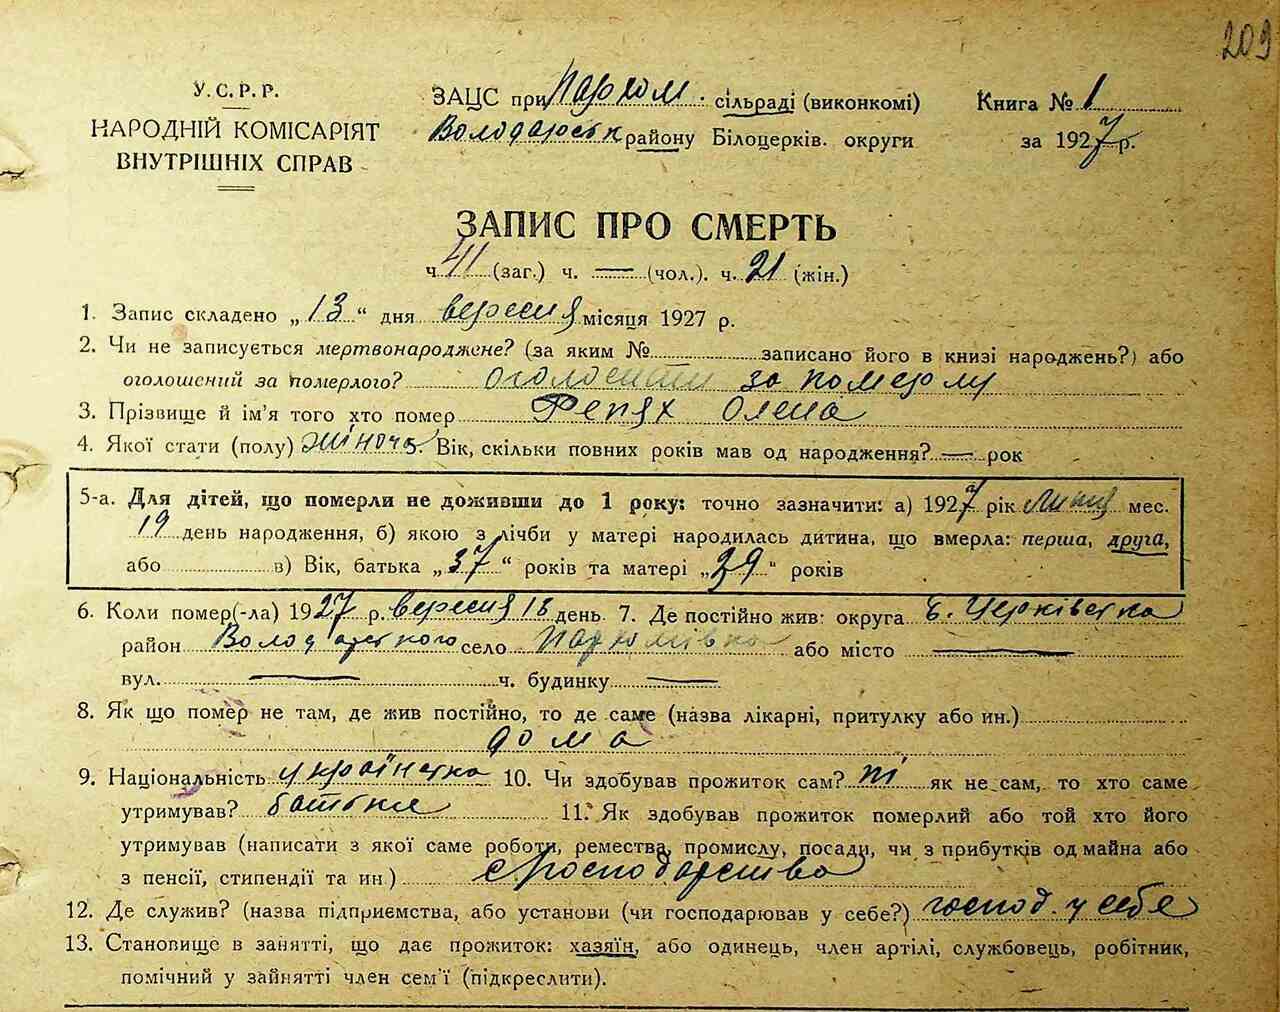 209
У.С.Р.Р.
НАРОДНІЙ КОМІСАРІЯТ
ВНУТРІШНІХ СПРАВ
ЗАЦС при Пархом. сільраді (виконкомі)
Володарськ району Білоцерків. округи
Книга № 1
за 1927 р.
ЗАПИС ПРО СМЕРТЬ
ч 41 (заг.) ч. — (чол.). ч. 21 (жін.)
1. Запис складено „13“ дня вересня місяця 1927 р.
2. Чи не записується мертвонароджене? (за яким № записано його в книзі народжень?) або
оголошений за померлого? оголосити за померлу
3. Прізвище й ім'я того хто помер Репях Олена
4. Якої стати (полу) жіноча. Вік, скільки повних років мав од народження? — рок
5-а. Для дітей, що померли не доживши до 1 року: точно зазначити: а) 1927 рік липня мес.
19 день народження, б) якою з лічби у матері народилась дитина, що вмерла: перша, друга,
або в) Вік, батька „37“ років та матері „29“ років
6. Коли помер(-ла) 1927 р. вересня день. 7. Де постійно жив: округа Б. Церківська
район Володарського село Пархомівка або місто —
вул. — ч. будинку —
8. Як що помер не там, де жив постійно, то де саме (назва лікарні, притулку або ин.)
дома
9. Національність українка 10. Чи здобував прожиток сам? ні як не сам, то хто саме
утримував? батьки 11. Як здобував прожиток померлий або той хто його
утримував (написати з якої саме роботи, ремества, промислу, посади, чи з прибутків од майна або
з пенсії, стипендії та ин.) с господарства
12. Де служив? (назва підприємства, або установи (чи господарював у себе?) господ. у себе
13. Становище в занятті, що дає прожиток: хазяїн, або одинець, член артілі, службовець, робітник,
помічний у зайнятті член сем'ї (підкреслити).